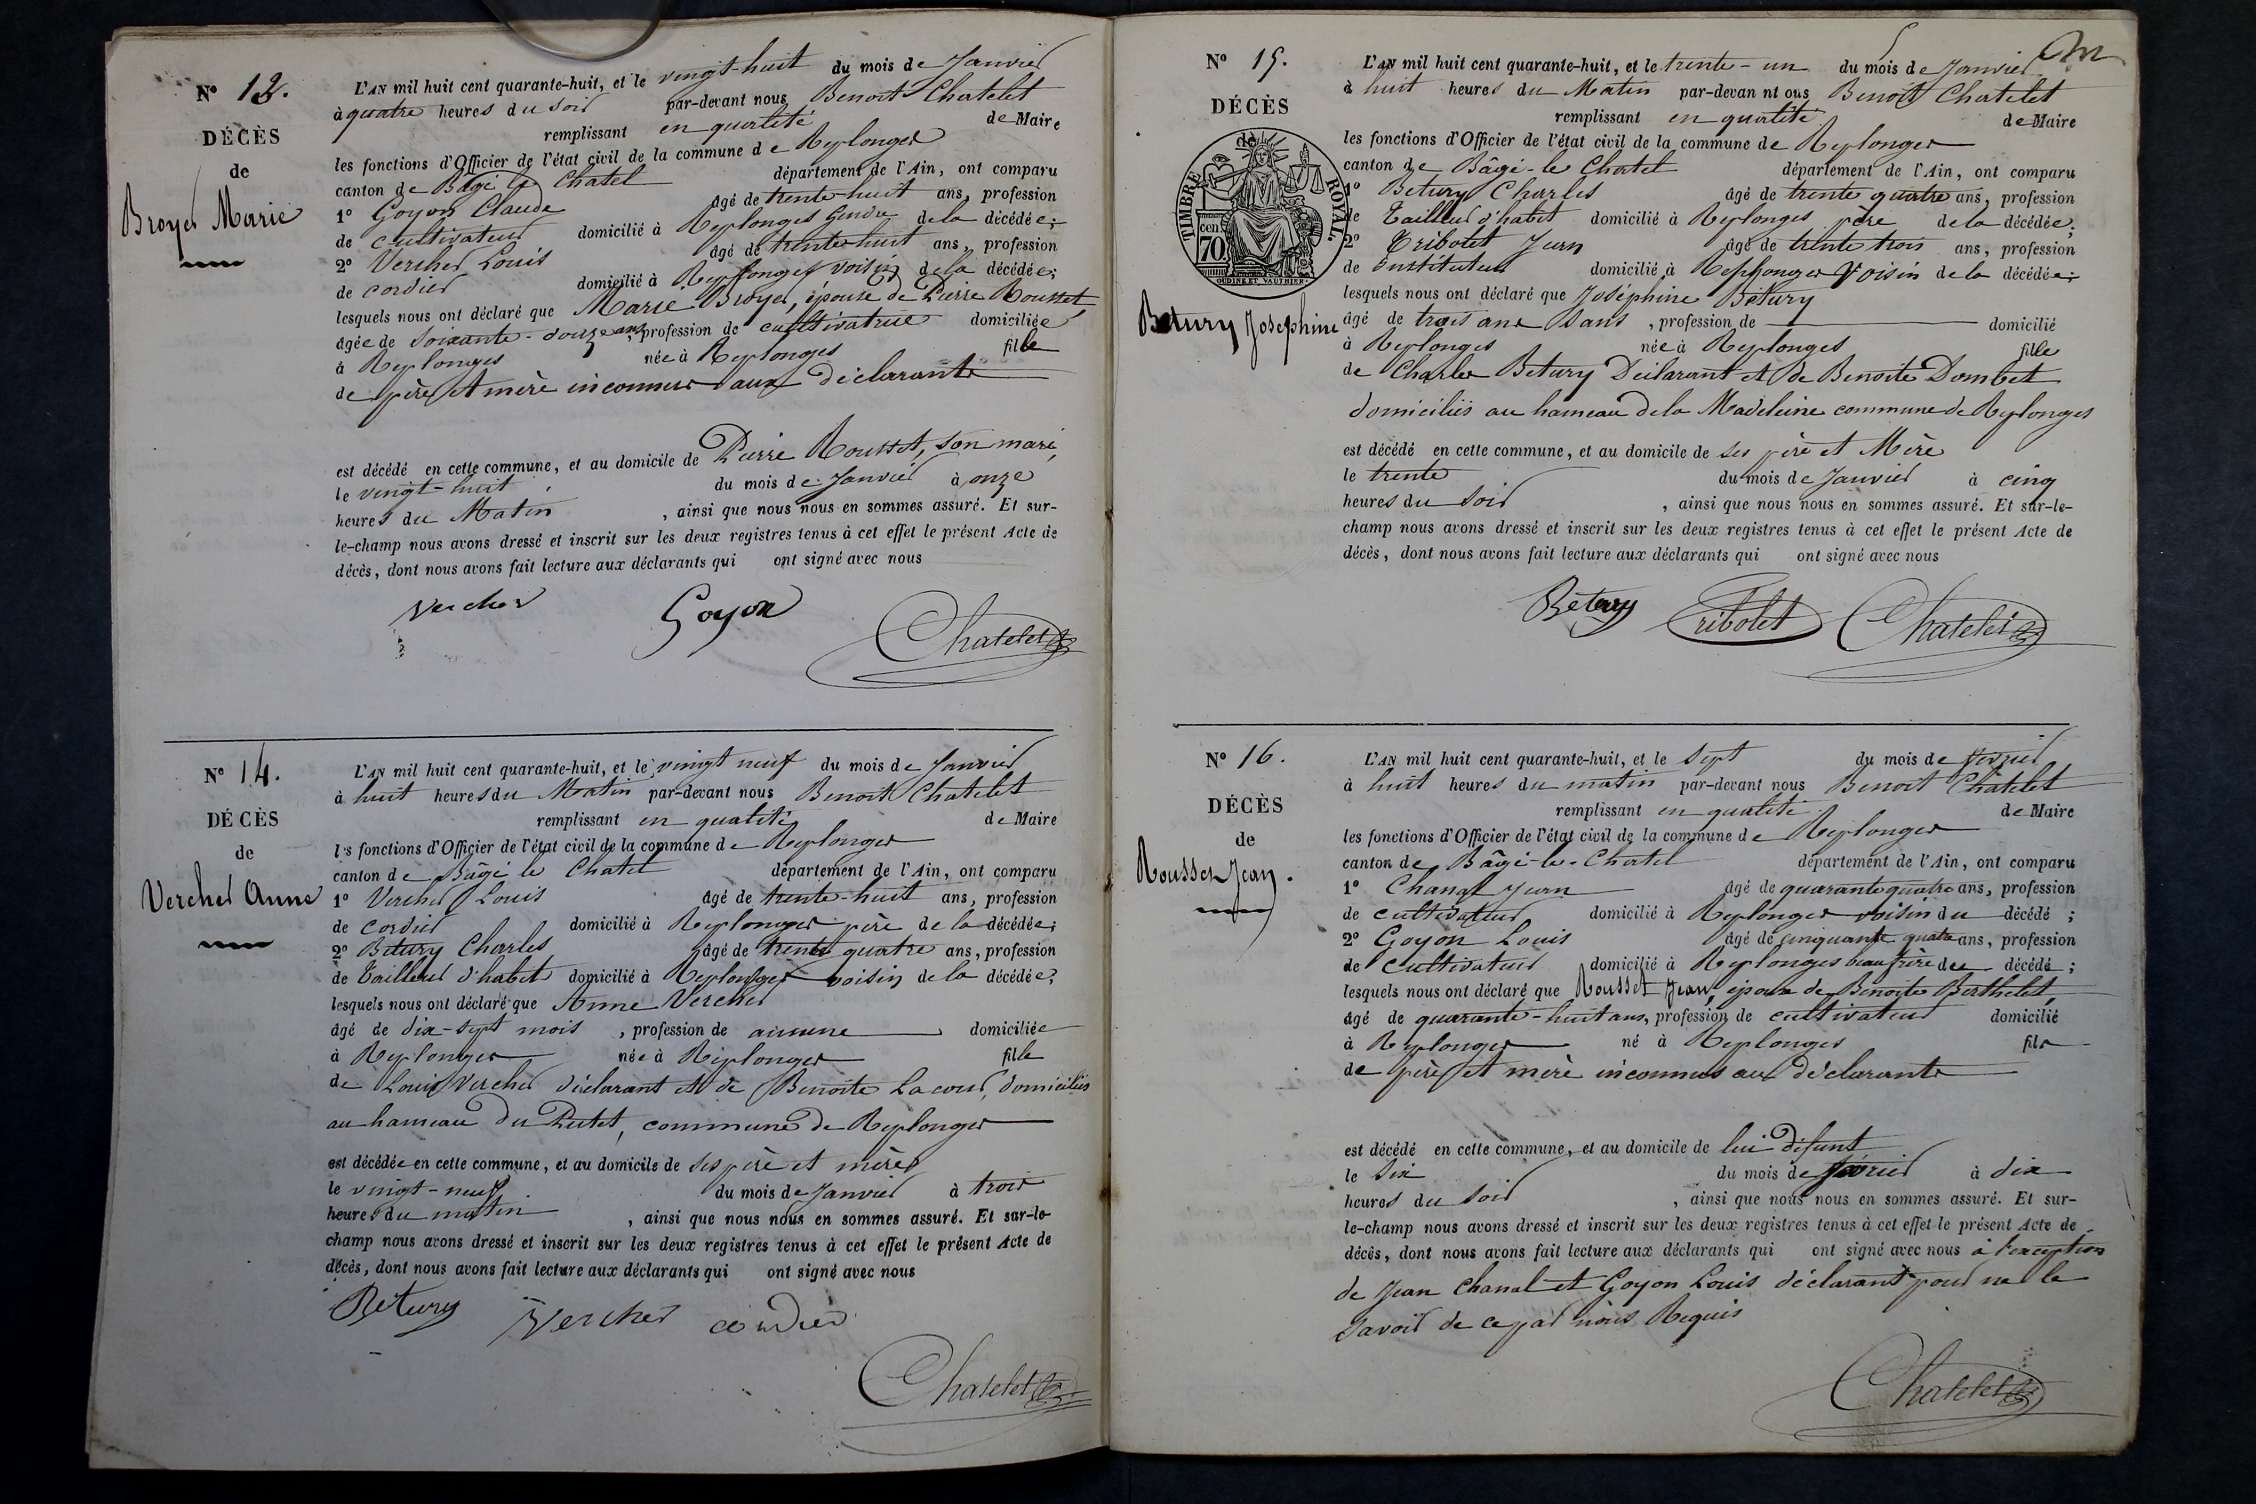 N° 13.
DÉCÈS
de
Broyer Marie
L'AN mil huit cent quarante-huit, et le vingt-huit du mois de Janvier
à quatre heures du soir par-devant nous Benoit Chatelet
remplissant en qualité de Maire
les fonctions d'Officier de l'état civil de la commune de Replonges
canton de Bâgé le Chatel département de l'Ain, ont comparu
1° Goyon Claude âgé de trente-huit ans, profession
de cultivateur domicilié à Replonges gendre de la décédée;
2° Vercher Louis âgé de trente-huit ans, profession
de cordier domicilié à Replonges voisin de la décédée;
lesquels nous ont déclaré que Marie Broyer, épouse de Pierre Rousset,
âgée de soixante-douze ans, profession de cultivatrice domiciliée
à Replonges née à Replonges fille
de père et mère inconnus aux déclarants
est décédé en cette commune, et au domicile de Pierre Rousset, son mari,
le vingt-huit du mois de Janvier à onze
heures du Matin, ainsi que nous nous en sommes assuré. Et sur-
le-champ nous avons dressé et inscrit sur les deux registres tenus à cet effet le présent Acte de
décès, dont nous avons fait lecture aux déclarants qui ont signé avec nous
Vercher Goyon Chatelet
N° 14.
DÉCÈS
de
Vercher Anne
L'AN mil huit cent quarante-huit, et le vingt neuf du mois de Janvier
à huit heures du Matin par-devant nous Benoit Chatelet
remplissant en qualité de Maire
les fonctions d'Officier de l'état civil de la commune de Replonges
canton de Bâgé le Chatel département de l'Ain, ont comparu
1° Vercher Louis âgé de trente-huit ans, profession
de cordier domicilié à Replonges père de la décédée;
2° Bétury Charles âgé de trente quatre ans, profession
de Tailleur d'habit domicilié à Replonges voisin de la décédée;
lesquels nous ont déclaré que Anne Vercher
âgé de dix-sept mois, profession de aucune domiciliée
à Replonges née à Replonges fille
de Louis Vercher déclarant et de Benoite Lacour, domiciliés
au hameau du Putet, commune de Replonges
est décédée en cette commune, et au domicile de ses père et mère
le vingt-neuf du mois de Janvier à trois
heures du matin, ainsi que nous nous en sommes assuré. Et sur-le-
champ nous avons dressé et inscrit sur les deux registres tenus à cet effet le présent Acte de
décès, dont nous avons fait lecture aux déclarants qui ont signé avec nous
Bétury Vercher cordier
Chatelet
N° 15.
DÉCÈS
de
TIMBRE ROYAL.
70 cen
OUDINÉ ET VAUTHIER.
Bétury Josephine
L'AN mil huit cent quarante-huit, et le trente-un du mois de Janvier
à huit heures du Matin par-devan nt ous Benoit Chatelet
remplissant en qualité de Maire
les fonctions d'Officier de l'état civil de la commune de Replonges
canton de Bâgé-le Chatel département de l'Ain, ont comparu
1° Bétury Charles âgé de trente quatre ans, profession
de Tailleur d'habit domicilié à Replonges père de la décédée;
2° Tribolet Jean âgé de trente trois ans, profession
de Instituteur domicilié à Replonges Voisin de la décédée;
lesquels nous ont déclaré que Joséphine Bétury
âgé de trois ans sans, profession de domicilié
à Replonges née à Replonges fille
de Charles Bétury Déclarant et de Benoite Dombet
domiciliés au hameau de la Madeleine commune de Replonges
est décédé en cette commune, et au domicile de ses père et Mère
le trente du mois de Janvier à cinq
heures du soir, ainsi que nous nous en sommes assuré. Et sur-le-
champ nous avons dressé et inscrit sur les deux registres tenus à cet effet le présent Acte de
décès, dont nous avons fait lecture aux déclarants qui ont signé avec nous
Bétury Tribolet Chatelet
N° 16.
DÉCÈS
de
Rousset Jean.
L'AN mil huit cent quarante-huit, et le sept du mois de février
à huit heures du matin par-devant nous Benoit Chatelet
remplissant en qualité de Maire
les fonctions d'Officier de l'état civil de la commune de Replonges
canton de Bâgé-le-Chatel département de l'Ain, ont comparu
1° Chanal Jean âgé de quarante quatre ans, profession
de cultivateur domicilié à Replonges voisin du décédé;
2° Goyon Louis âgé de cinquante quatre ans, profession
de cultivateur domicilié à Replonges beau frère du décédé;
lesquels nous ont déclaré que Rousset Jean, époux de Benoite Berthelet,
âgé de quarante-huit ans, profession de cultivateur domicilié
à Replonges né à Replonges fils
de père et mère inconnus aux déclarants
est décédé en cette commune, et au domicile de lui défunt
le six du mois de février à dix
heures du soir, ainsi que nous nous en sommes assuré. Et sur-
le-champ nous avons dressé et inscrit sur les deux registres tenus à cet effet le présent Acte de
décès, dont nous avons fait lecture aux déclarants qui ont signé avec nous à l'exception
de Jean Chanal et Goyon Louis déclarant pour ne le
savoir de ce par nous Requis
Chatelet